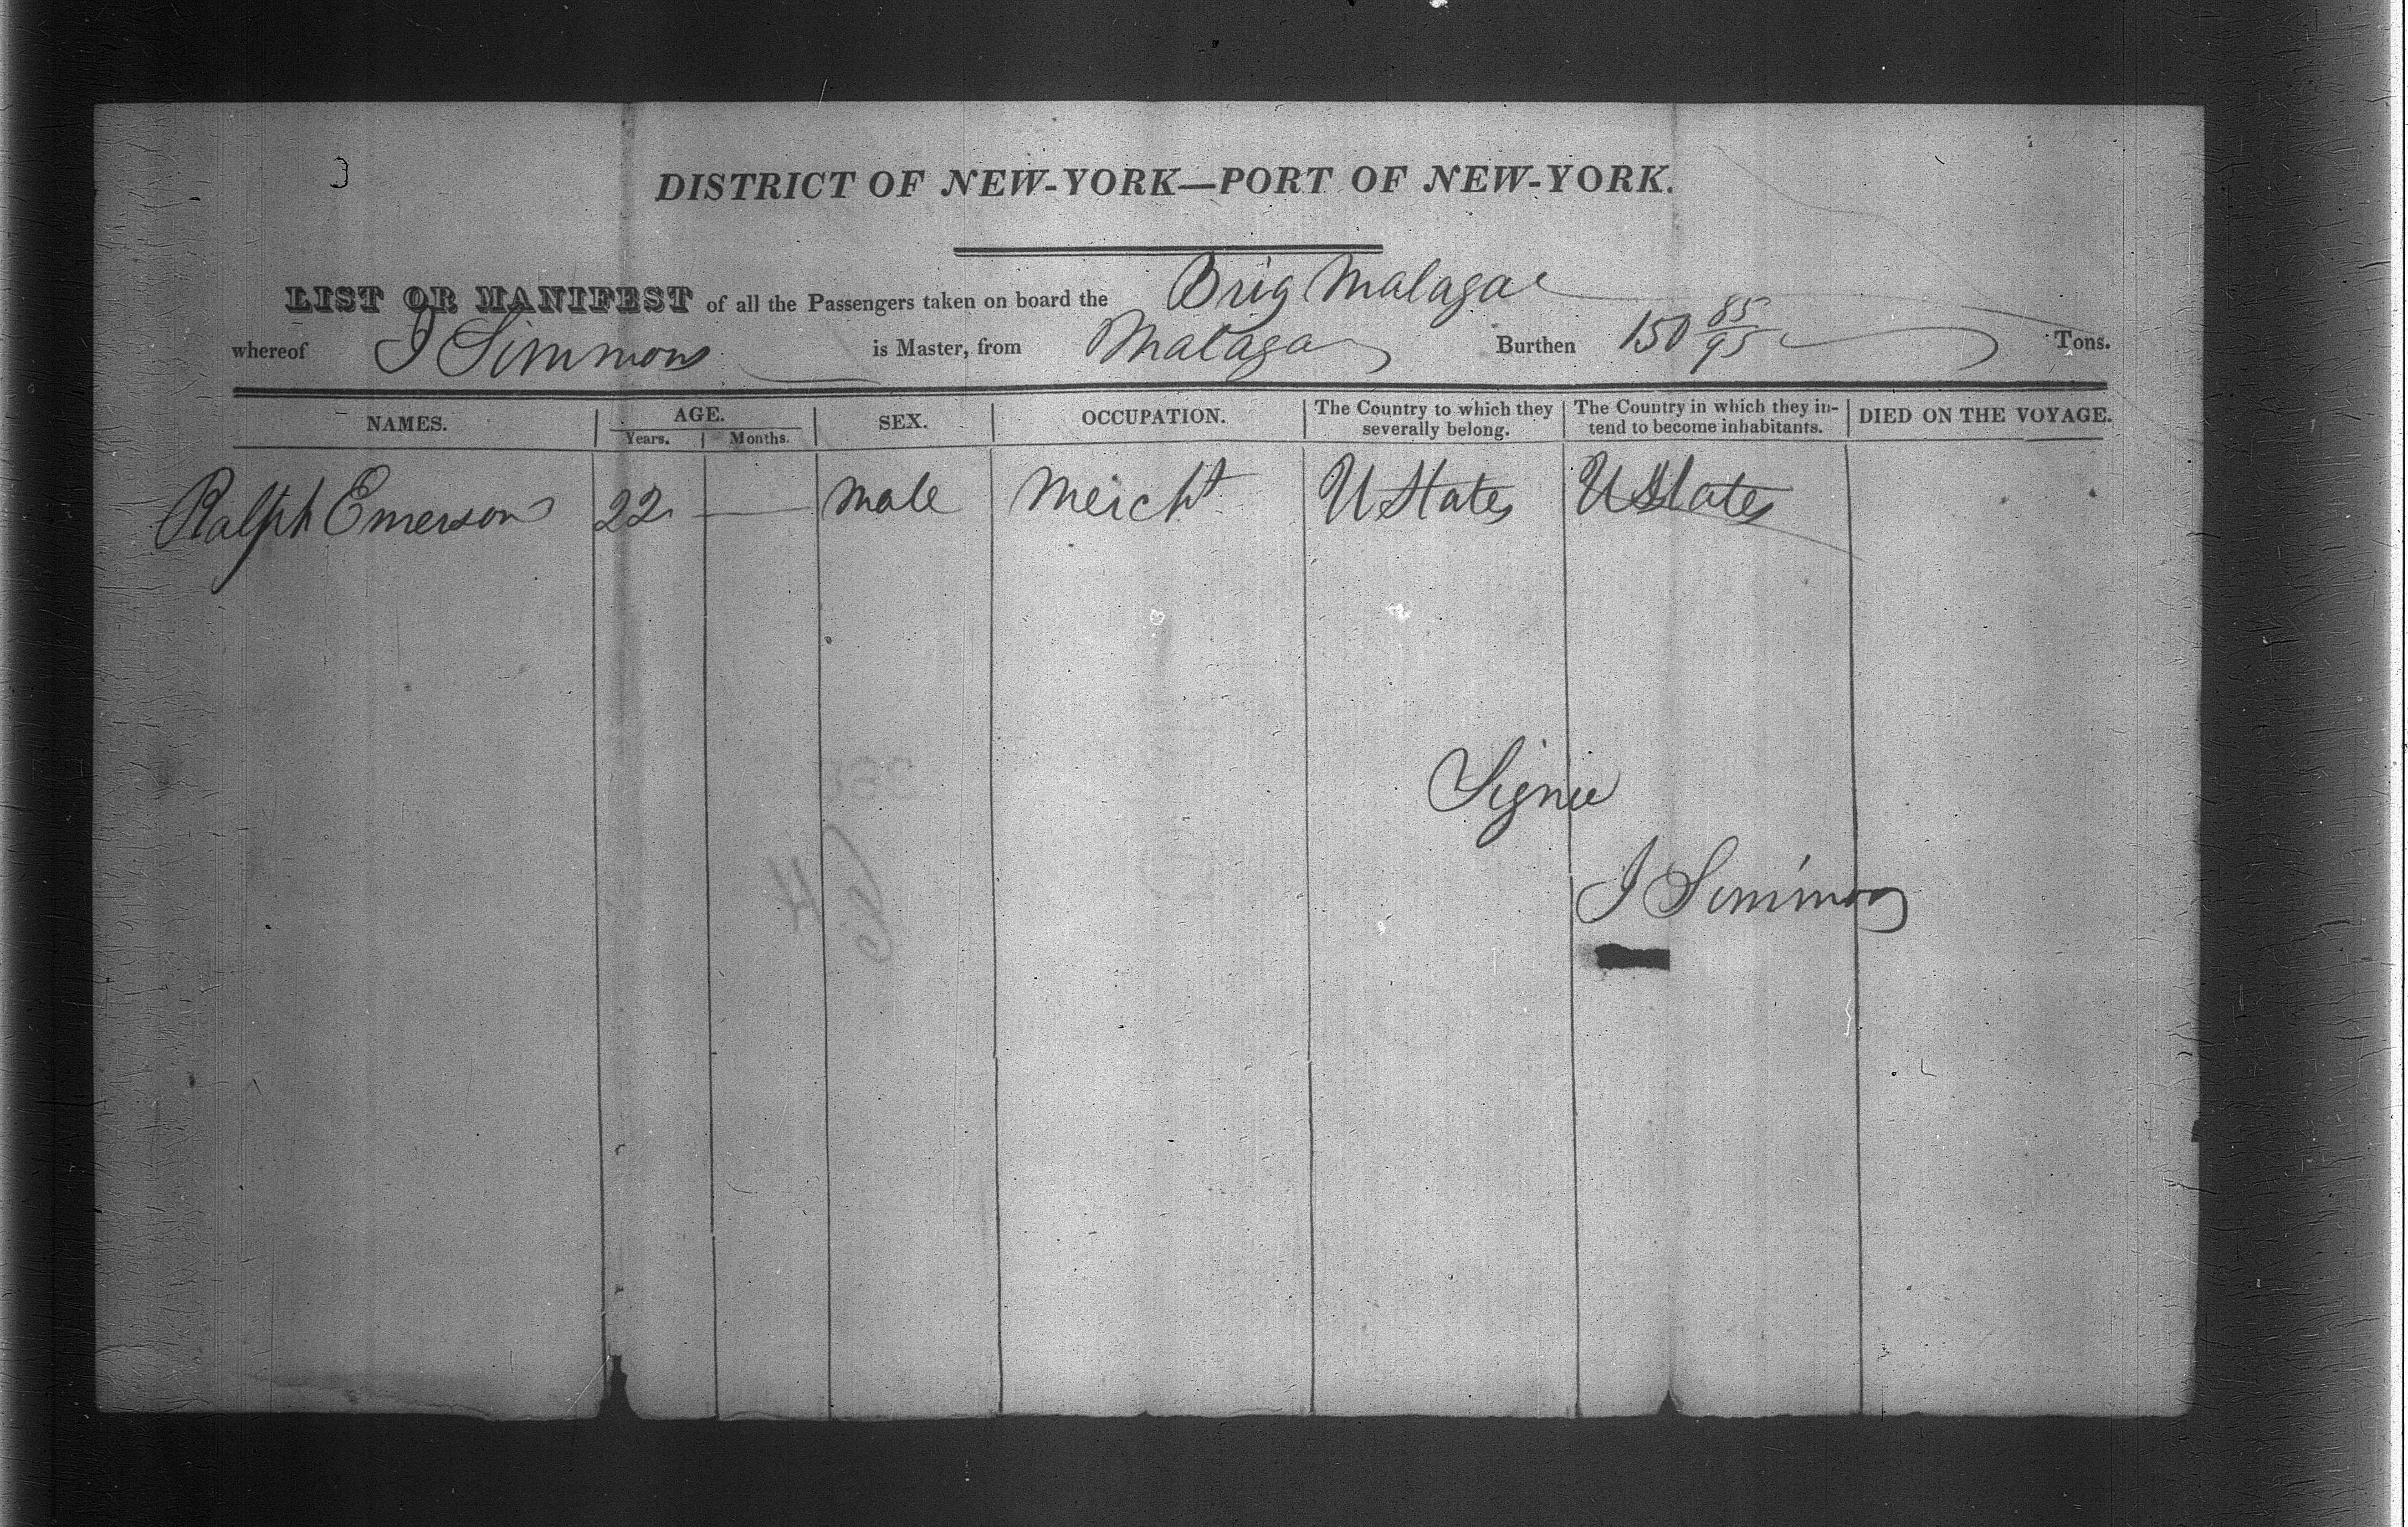 DISTRICT OF NEW-YORK—PORT OF NEW-YORK.
LIST OR MANIFEST of all the Passengers taken on board the Brig Malaga
whereof J Simmons is Master, from Malaga Burthen 150 85/95 Tons.
NAMES. AGE. Years. Months. SEX. OCCUPATION. The Country to which they severally belong. The Country in which they intend to become inhabitants. DIED ON THE VOYAGE.
Ralph Emerson 22 — male Mercht U States U States
J Simmons